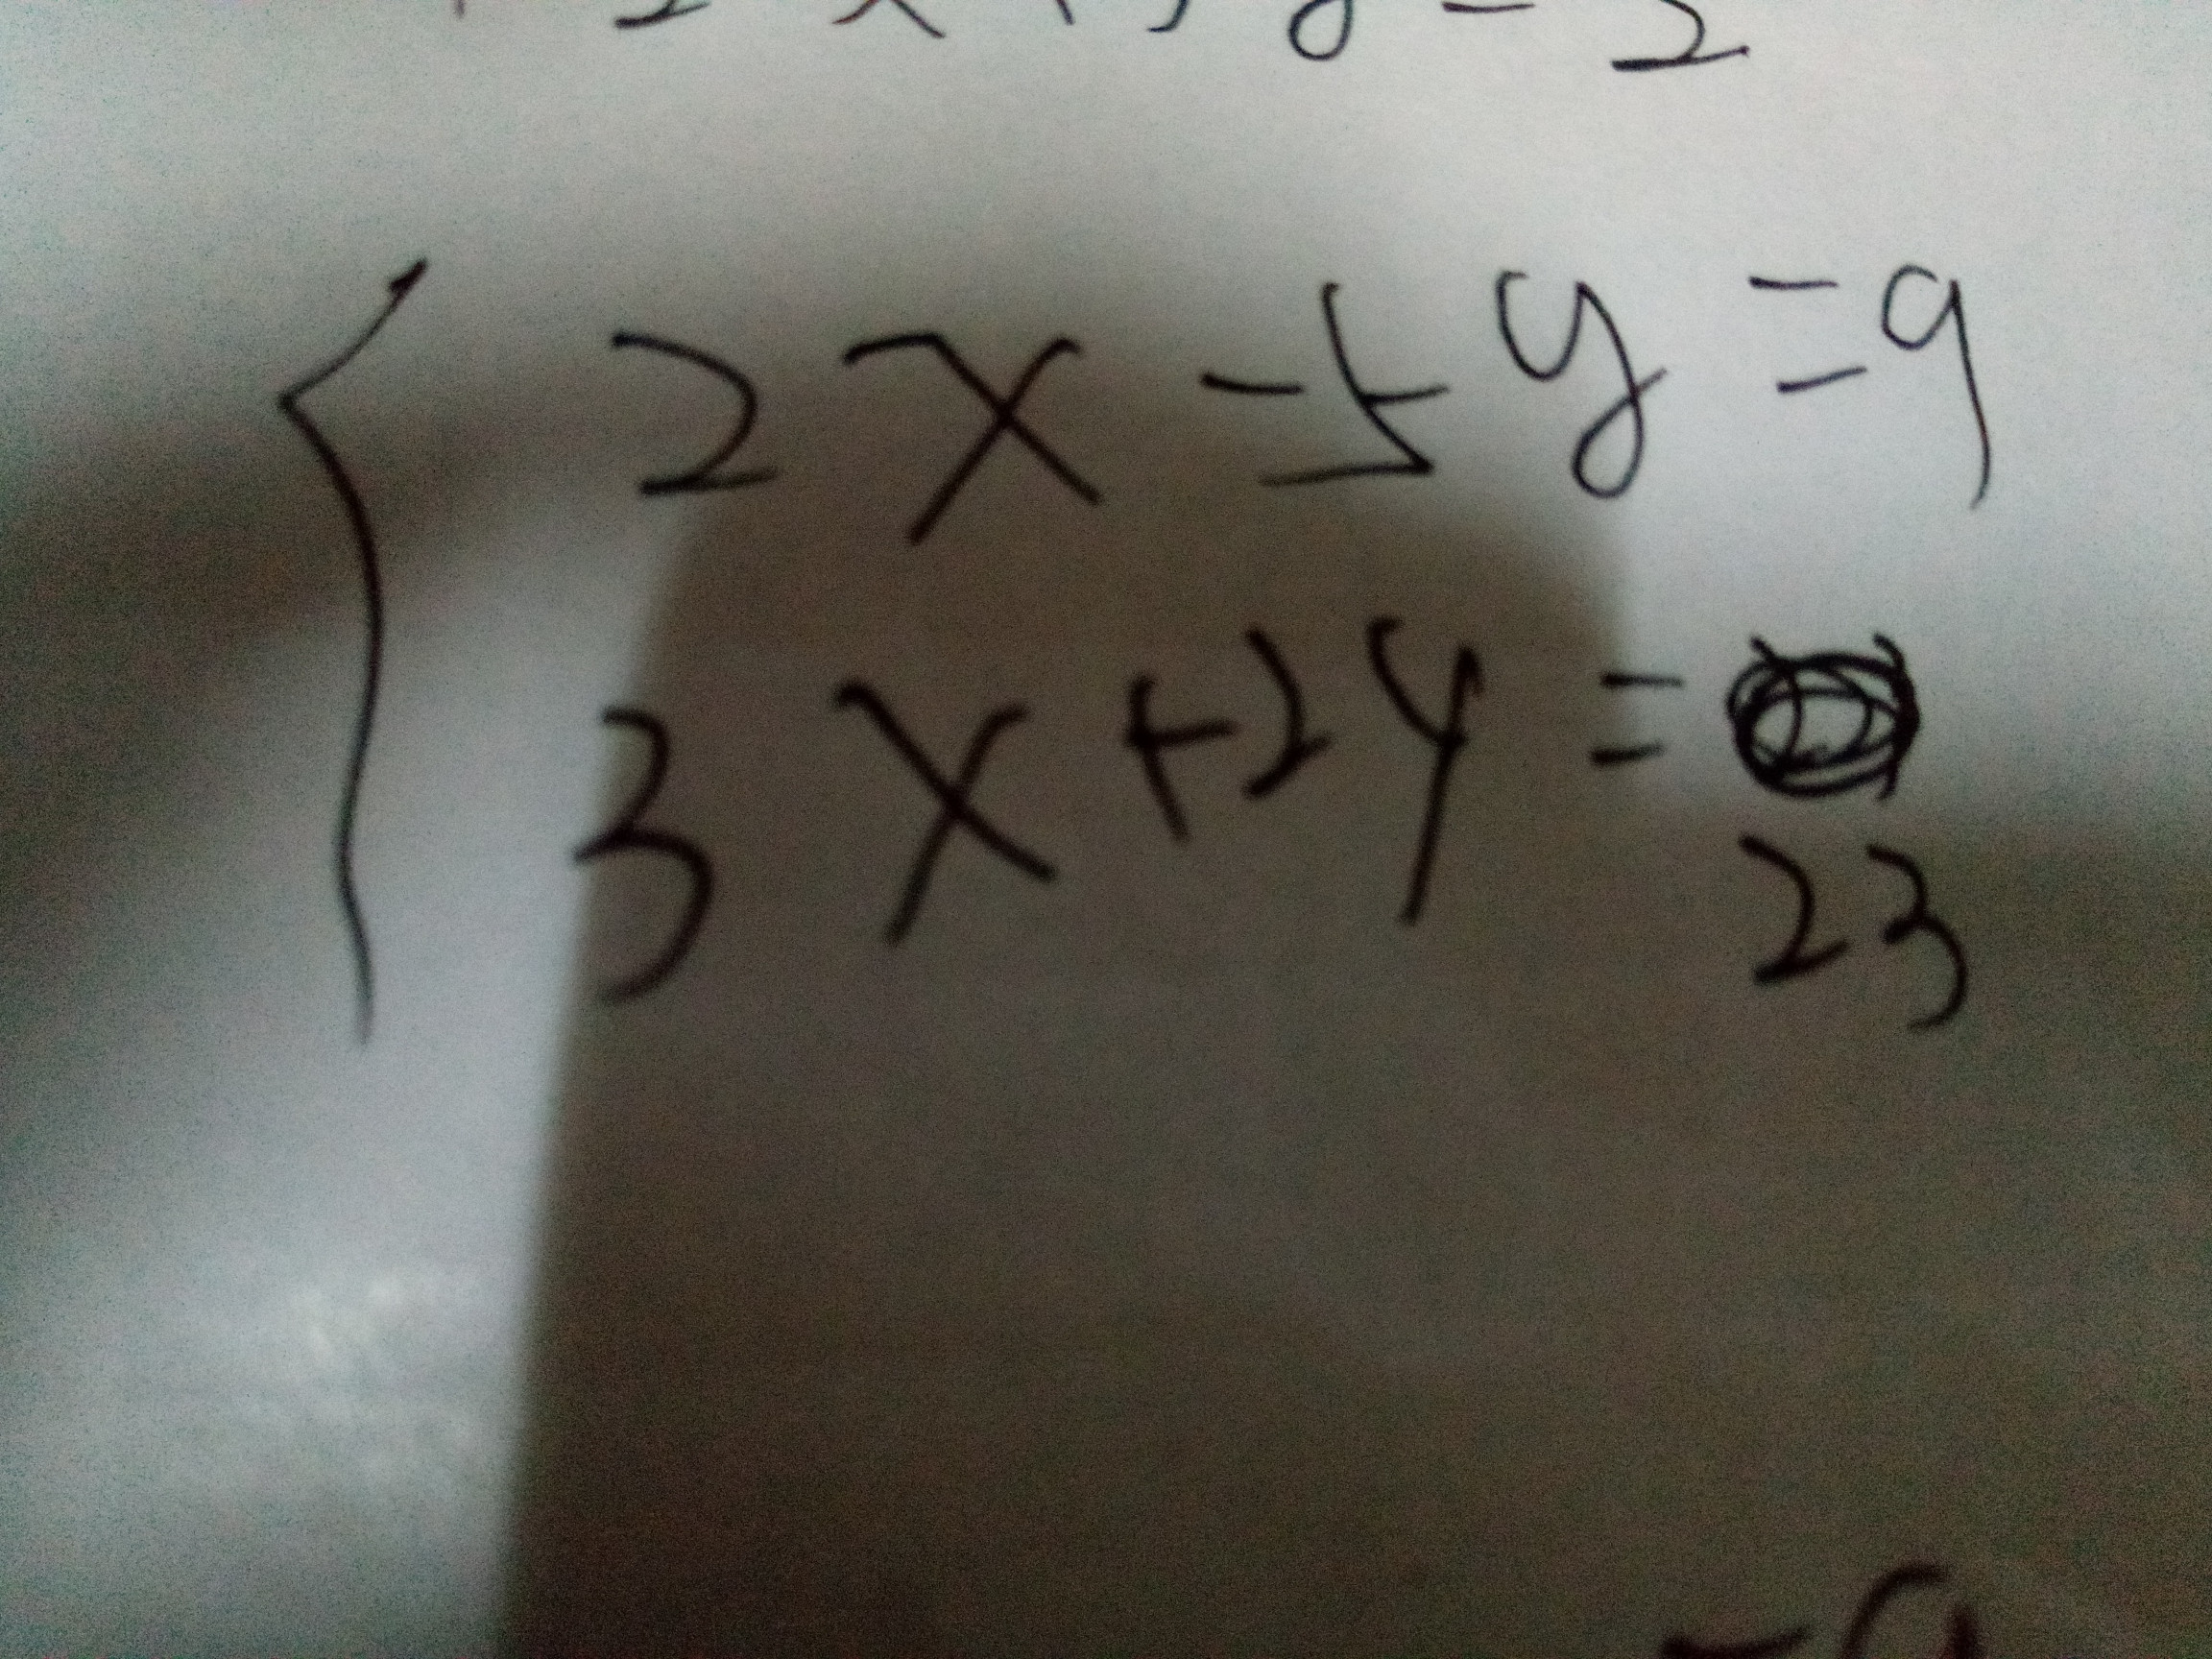 2x-5y=9
3x+2y=
23